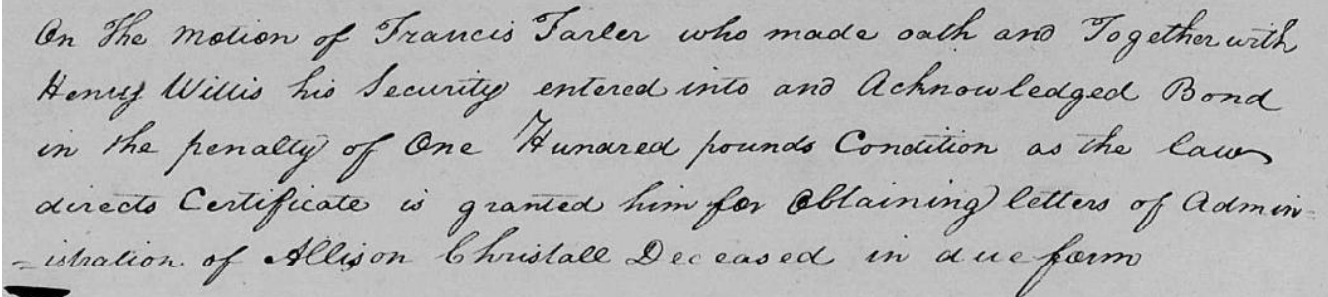 On The Motion of Francis Farler who made oath and Together with
Henry Willis his Security entered into and Acknowledged Bond
in the penalty of One Hundred pounds Condition as the law
directs Certificate is granted him for Obtaining letters of Admin=
=istration of Allison Christall Deceased in due form